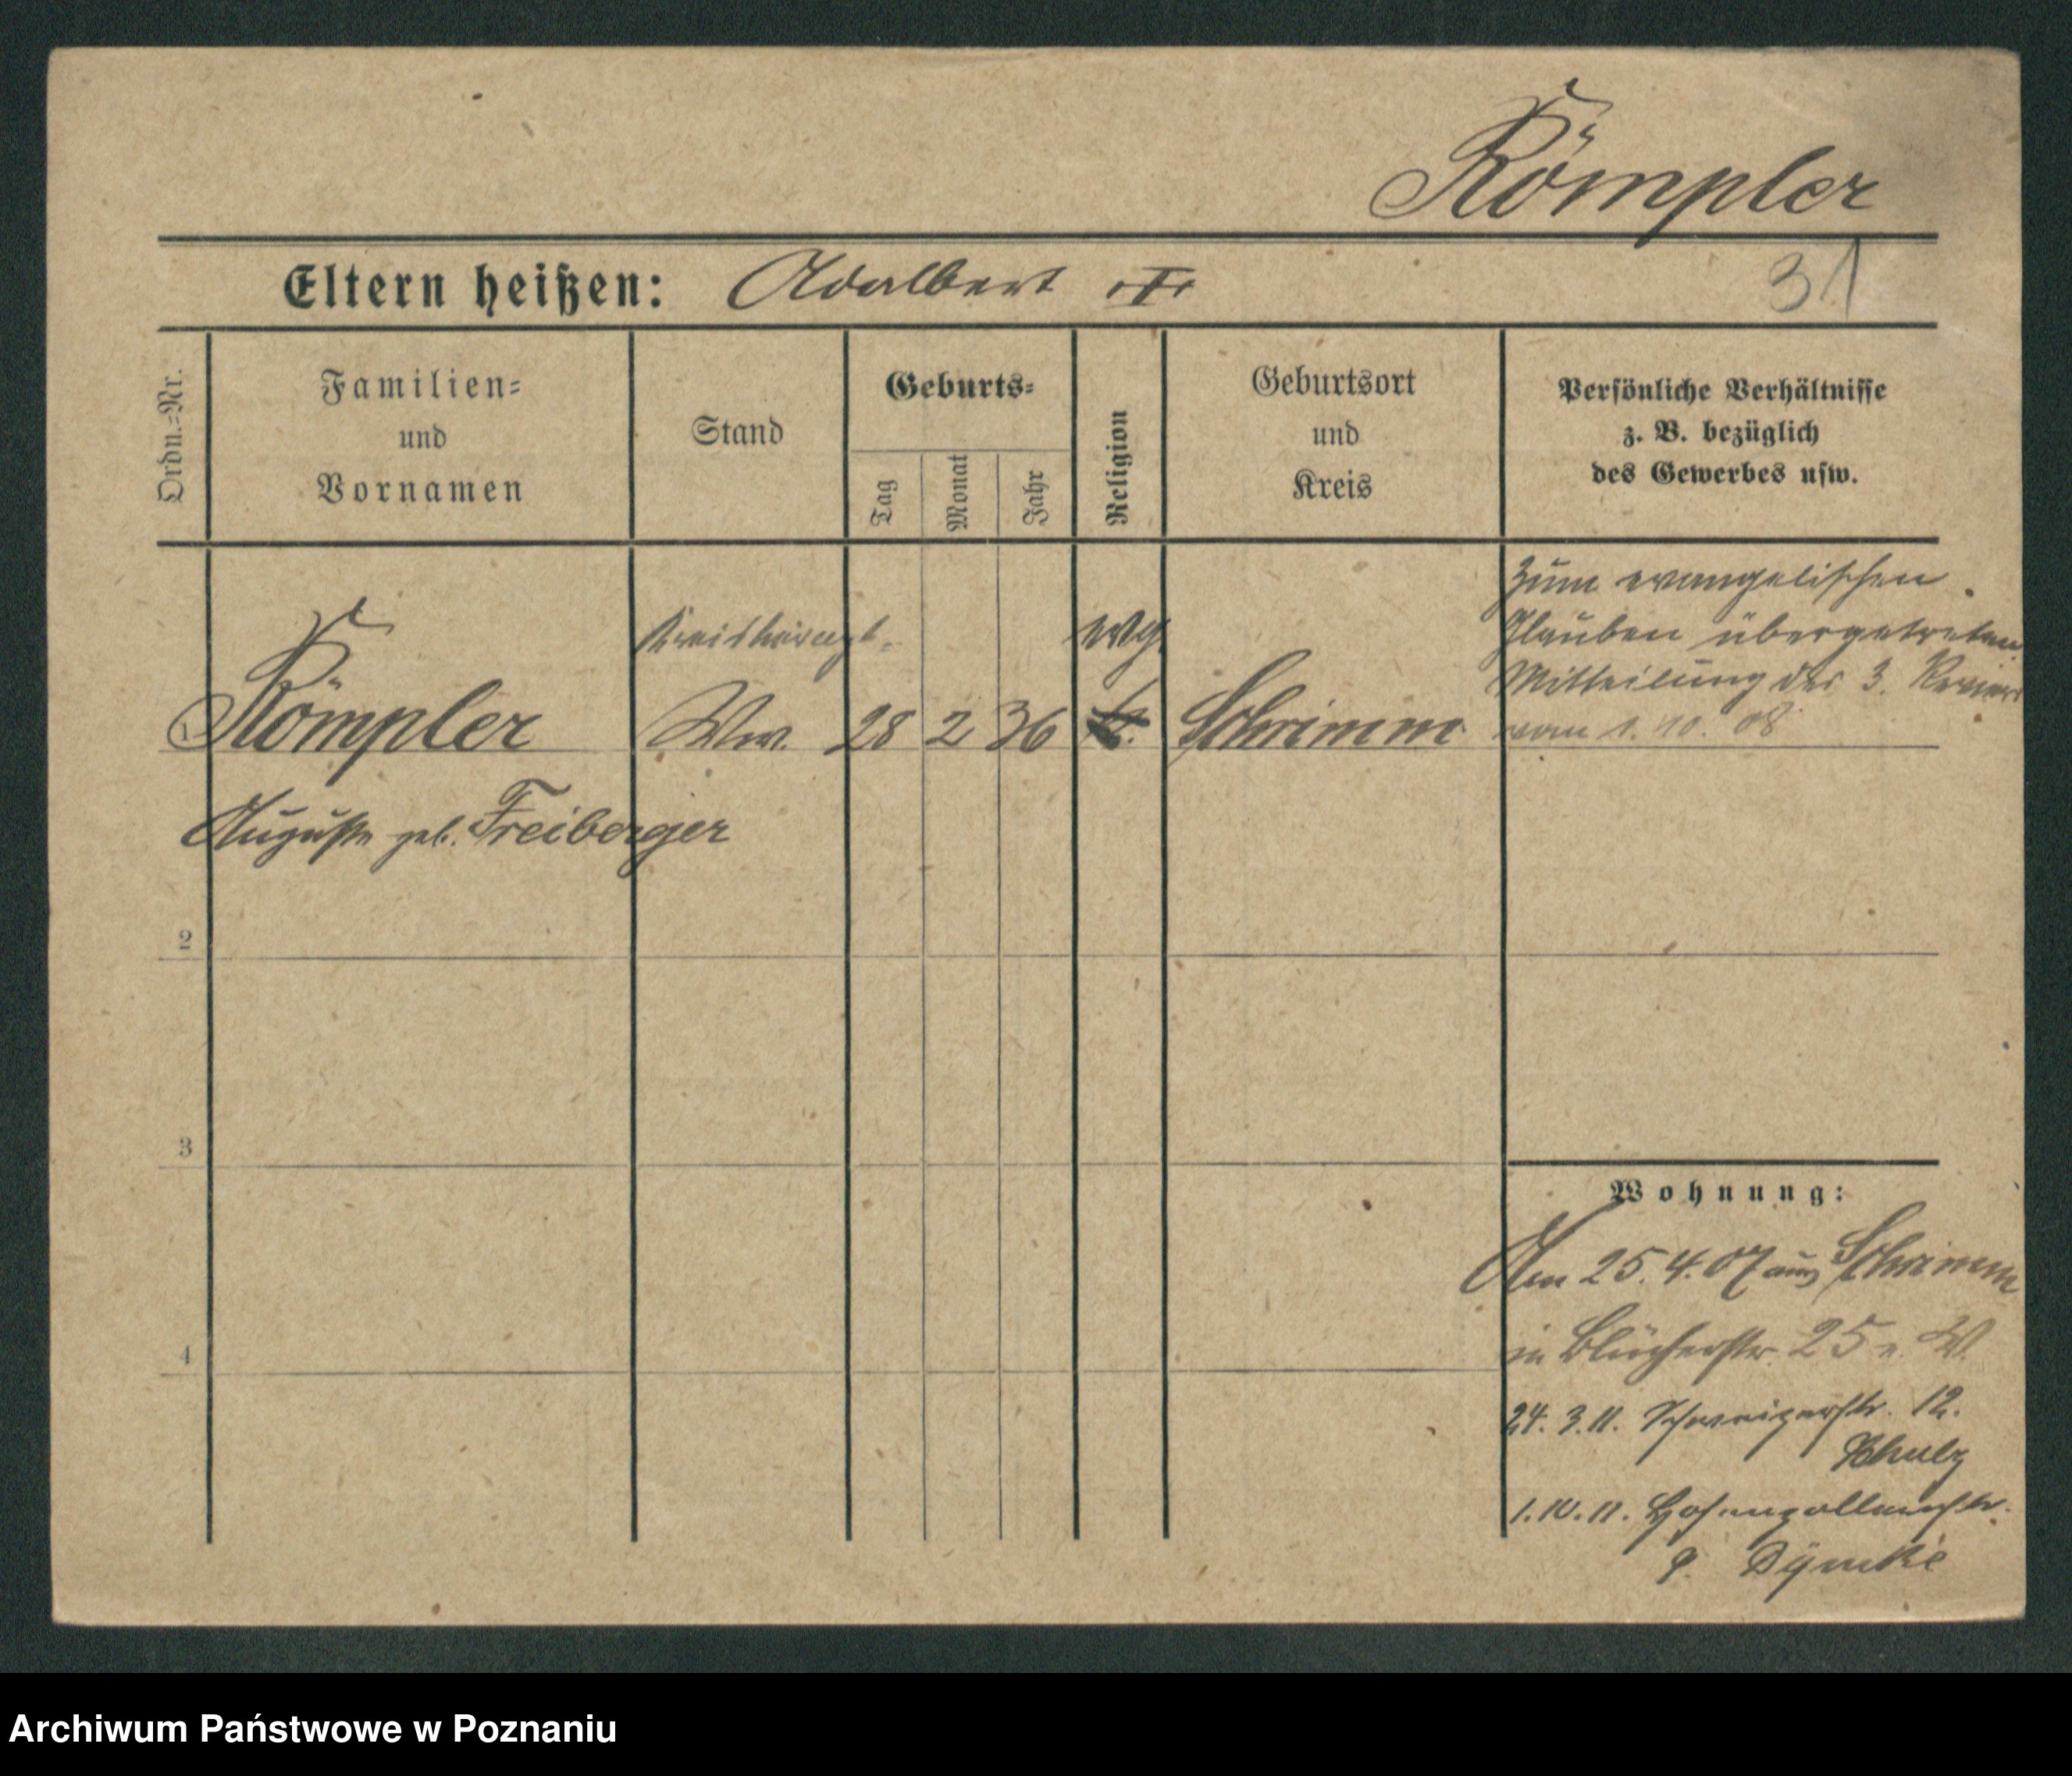 Römpler
Eltern heißen: Adalbert
31
Ordn.-Nr.
Familien-
und
Vornamen
Stand
Geburts-
Tag
Monat
Jahr
Religion
Geburtsort
und
Kreis
Persönliche Verhältnisse
z. B. bezüglich
des Gewerbes usw.
Römpler
Ww.
28
2
36
evg.
Schrimm
Zum evangelischen
Glauben übergetreten.
Mitteilung des 3. Reviers
vom 1. 10. 08
Auguste geb. Freiberger
2
3
4
Wohnung:
Am 25. 4. 07 aus Schrimm
in Blücherstr. 25
24. 3. 11. 12.
Schulz
1. 10. 11. Hohenzollernstr.
9. Dymke
Archiwum Państwowe w Poznaniu